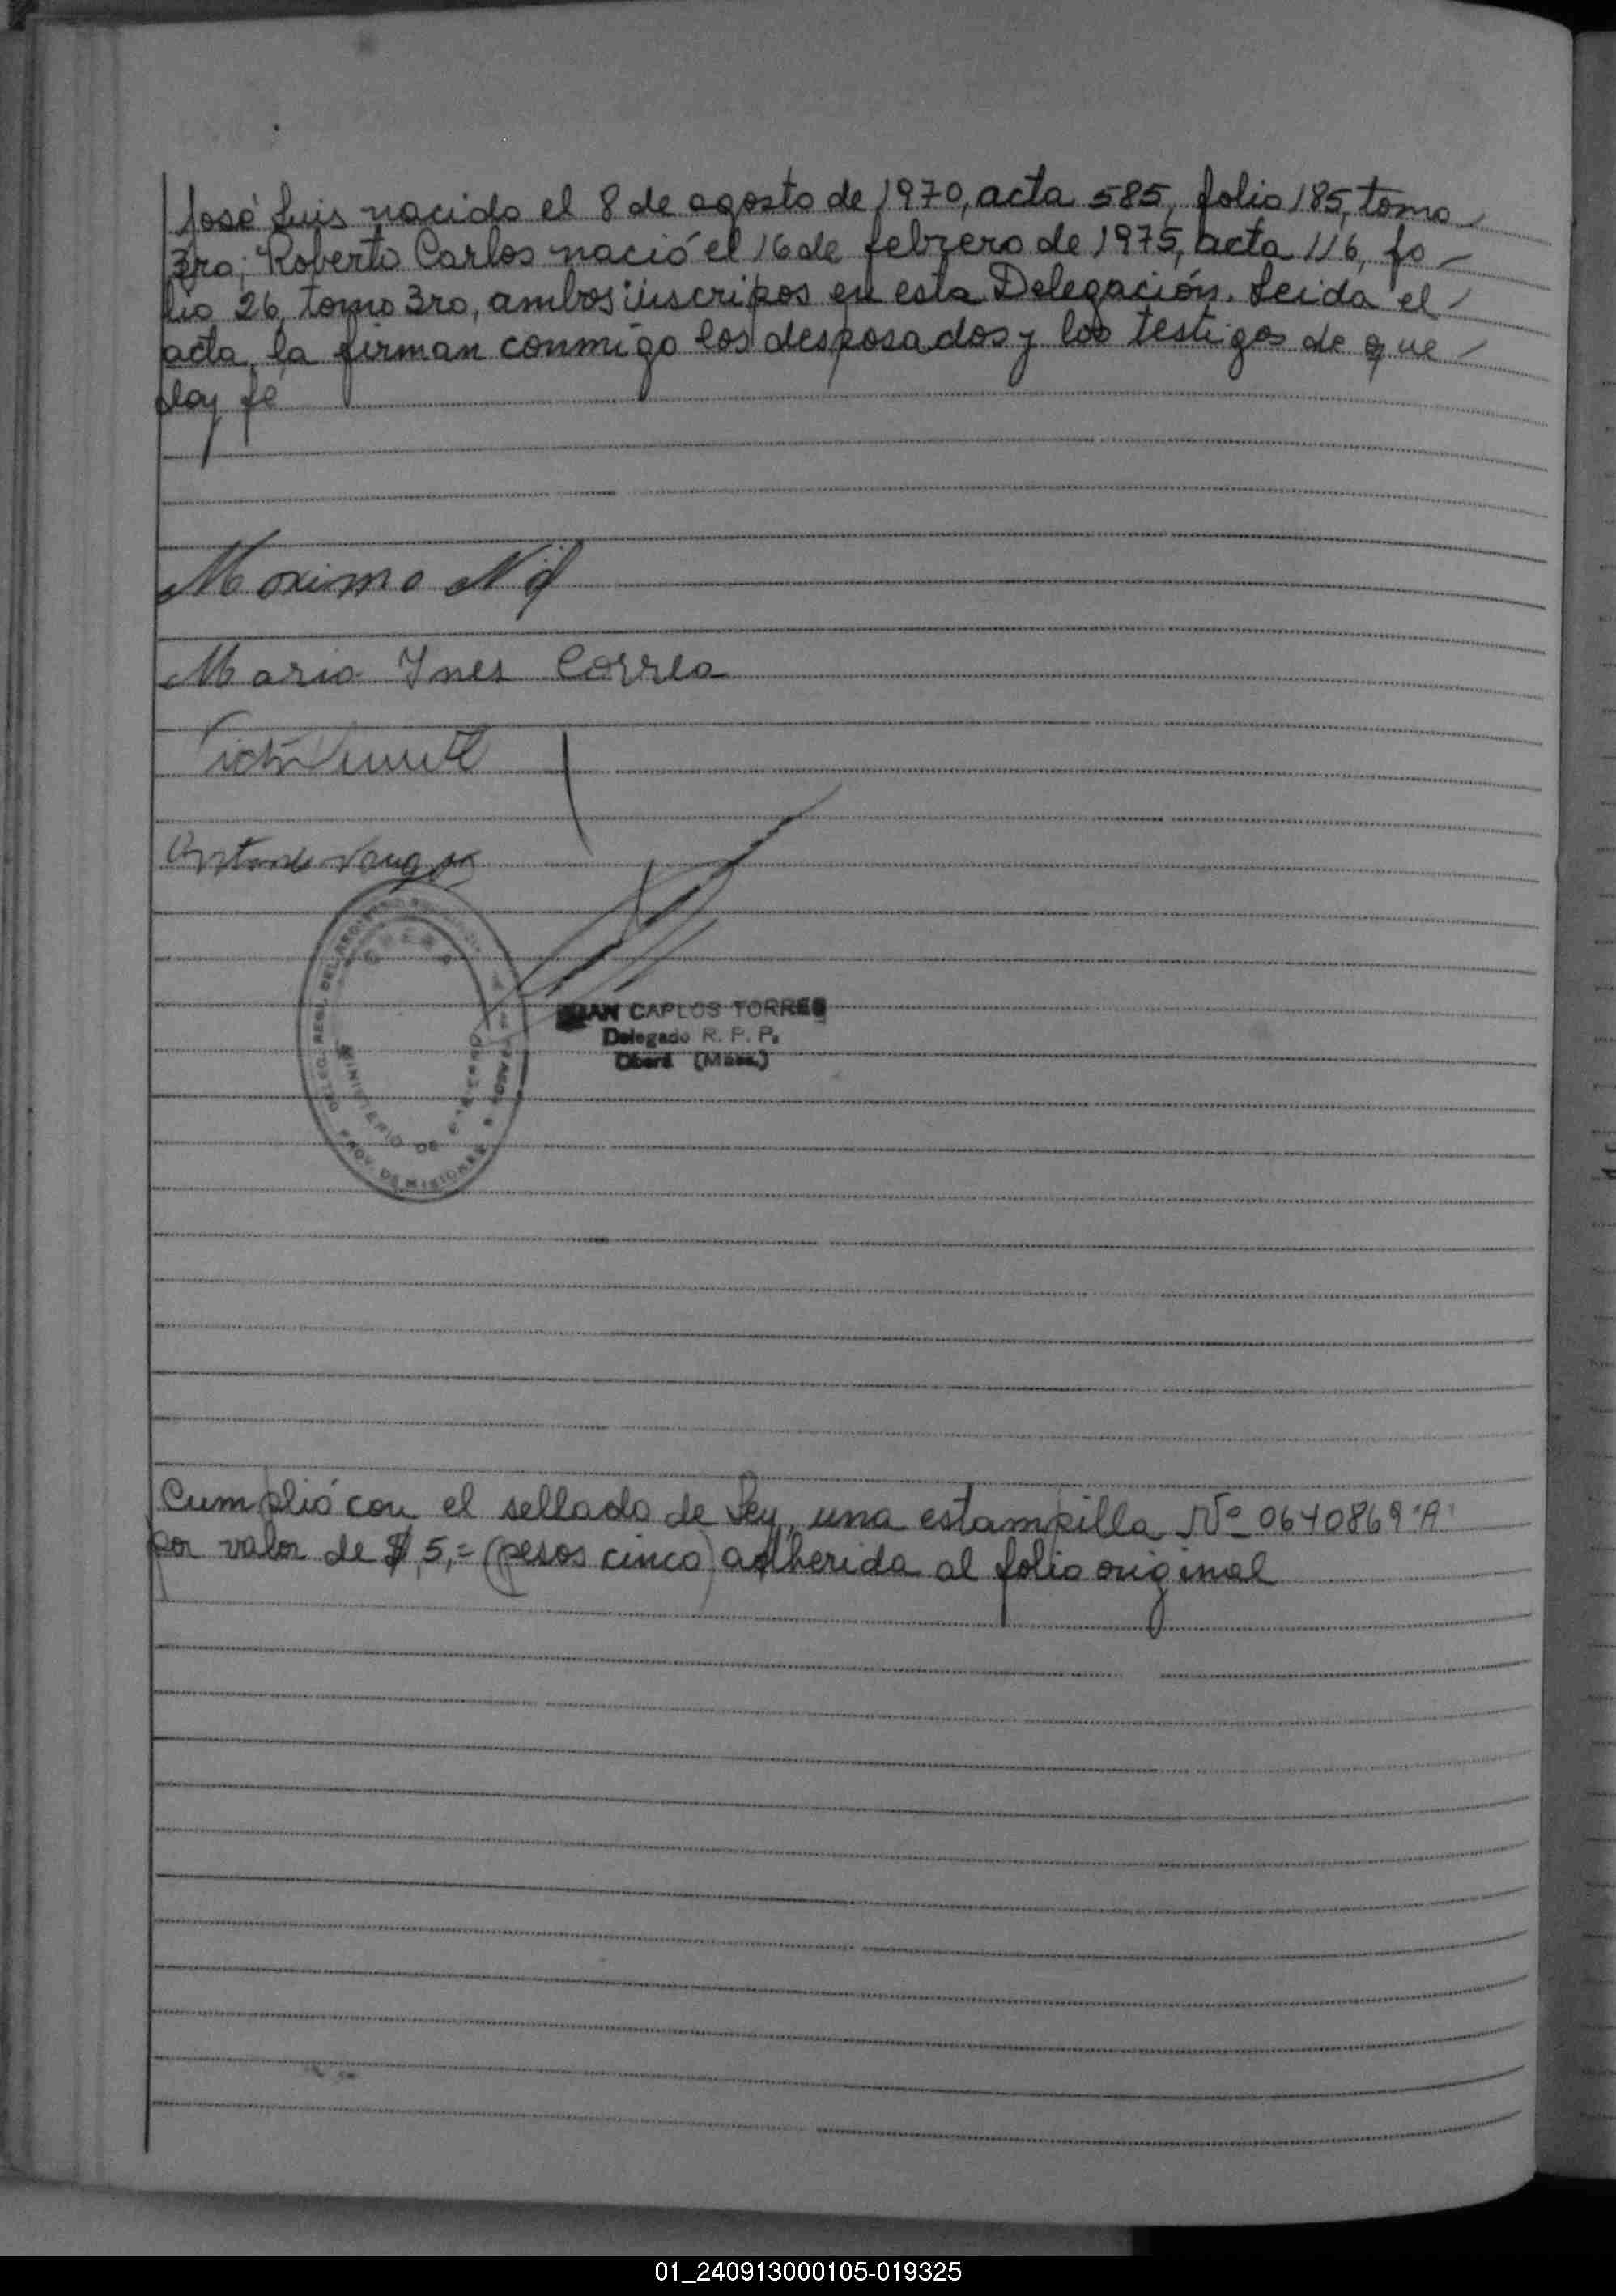 José Luis nacido el 8 de agosto de 1970, acta 585, folio 185, tomo
3ro; Roberto Carlos nació el 16 de febrero de 1975, acta 116, fo
lio 26, tomo 3ro, ambos inscripos en esta Delegación. Leida el
acta, la firman conmigo los desposados y los testigos de que
doy fé
Maximo
Maria Ines Correa
JUAN CARLOS TORRES
Delegado R. P. P.
Oberá (Mnes.)
MINISTERIO DE GOBIERNO
PROV. DE MISIONES
Cumplió con el sellado de Ley, una estampilla Nº 0640869 "A"
por valor de $ 5,= (pesos cinco) adherida al folio original
01_240913000105-019325